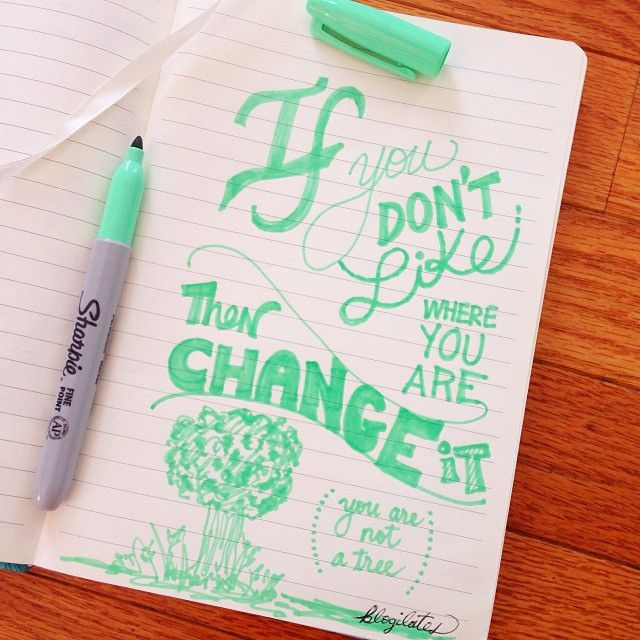 If
you
DON'T
Like
WHERE
YOU
ARE
Then
CHANGE
iT
you are
not
a tree
blogilates
Sharpie
FINE
POINT
AP